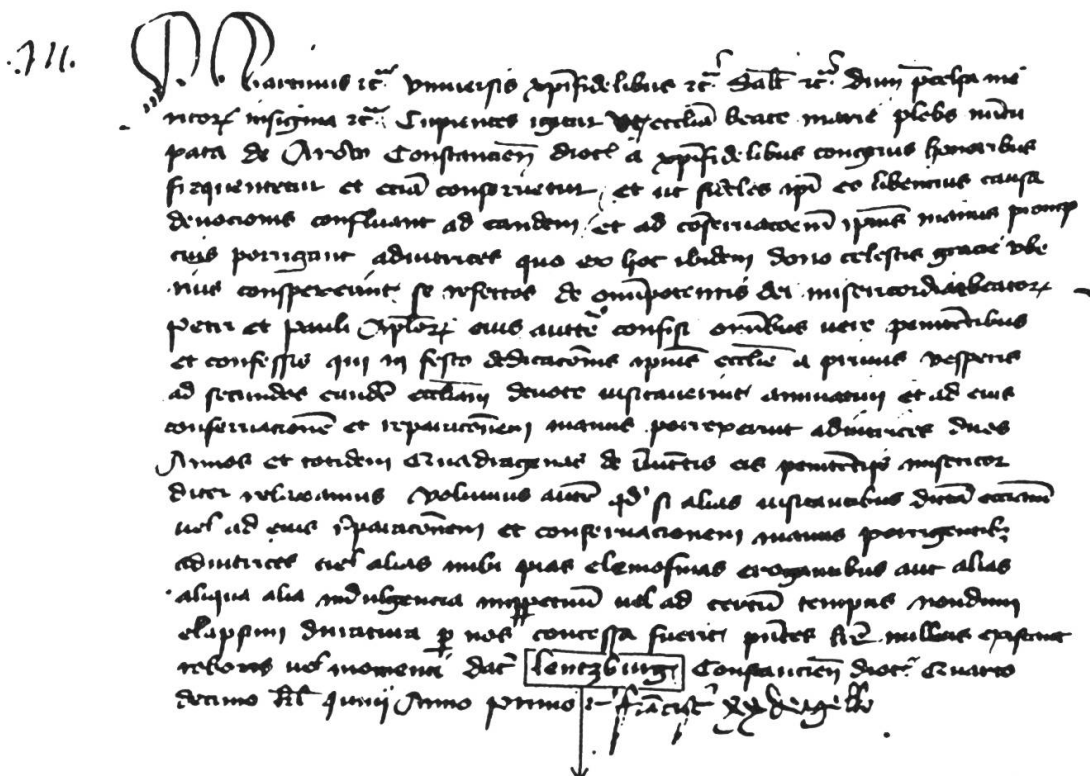 Martinus etc. Universis xpifidelibus etc. Salt etc. Dum precelsa me
ritorum insignia etc. Cupientes igitur ut ecclia beate marie plebs nuncu
pata de Arow Constancien dioc a xpifidelibus congruis honoribus
frequentetur et etiã conservetur, et ut fideles ipi eo libencius causa
devocionis confluant ad eandem et ad conservacoem ipius manus promp
cius porrigant adiutrices quo ex hoc ibidem dono celestis gracie ube
rius conspexerint se refectos de omipotentis dei misericordia et beatorum
Petri et pauli Aplorum eius aucte confisi omibus vere penitentibus
et confessis qui in festo dedicacois ipius ecclie a primis vesperis
ad secundas eandẽ eccliam devote visitaverint annuatim et ad eius
conservacionẽ et reparacoem manus porrexerint adiutrices duos
Annos et totidem Quadragenas de iniunctis eis penitenciis misericor
diter relaxamus Volumus autẽ qd si alias visitantibus dictã eccliam
vel ad eius reparacoem et conservacionem manus porrigentibus
adiutrices vel alias inibi pias elemosinas erogantibus aut alias
aliqua alia indulgencia imperpetuũ vel ad certũ tempus nondum
elapsum duratura p nos concessa fuerit pntes lre nullius existant
roboris vel momenti dat lentzburg Constancien dioc Quarto
decimo kl Junii Anno primo Francisc de Agello